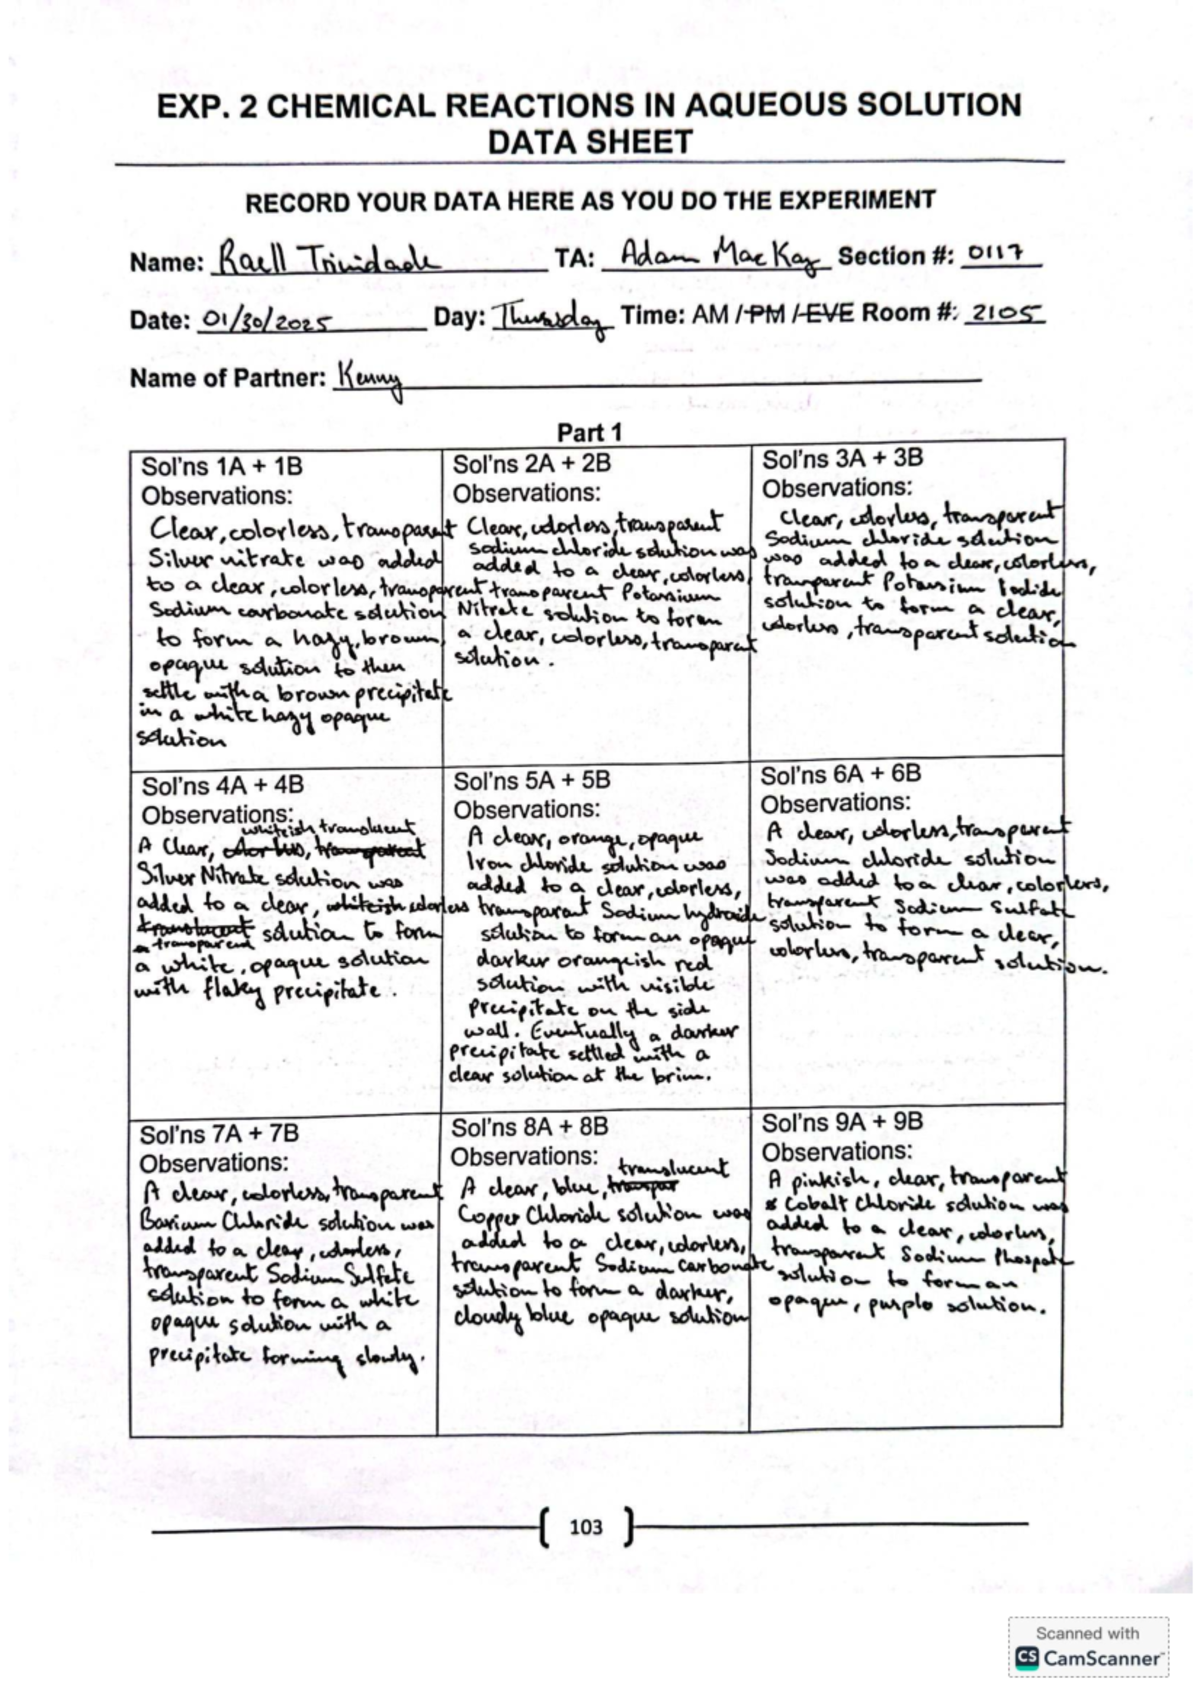 EXP. 2 CHEMICAL REACTIONS IN AQUEOUS SOLUTION
DATA SHEET
RECORD YOUR DATA HERE AS YOU DO THE EXPERIMENT
Name: Raell Trinidade TA: Adam MacKay Section #: 0117
Date: 01/30/2025 Day: Thursday Time: AM /PM /EVE Room #: 2105
Name of Partner: Kenny
Part 1
Sol'ns 1A + 1B
Observations:
Clear, colorless, transparent
Silver nitrate was added
to a clear, colorless, transparent
Sodium carbonate solution
to form a hazy, brown,
opaque solution to then
settle with a brown precipitate
in a white hazy opaque
solution
Sol'ns 2A + 2B
Observations:
Clear, colorless, transparent
sodium chloride solution was
added to a clear, colorless,
transparent Potassium
Nitrate solution to form
a clear, colorless, transparent
solution.
Sol'ns 3A + 3B
Observations:
Clear, colorless, transparent
Sodium chloride solution
was added to a clear, colorless,
transparent Potassium Iodide
solution to form a clear,
colorless, transparent solution
Sol'ns 4A + 4B
Observations:
whiteish translucent
A Clear, colorless, transparent
Silver Nitrate solution was
added to a clear, whiteish colorless
translucent solution to form
transparent
a white, opaque solution
with flaky precipitate.
Sol'ns 5A + 5B
Observations:
A clear, orange, opaque
Iron chloride solution was
added to a clear, colorless,
transparent Sodium hydroxide
solution to form an opaque
darker orangeish red
solution with visible
precipitate on the side
wall. Eventually a darker
precipitate settled with a
clear solution at the brim.
Sol'ns 6A + 6B
Observations:
A clear, colorless, transparent
Sodium chloride solution
was added to a clear, colorless,
transparent Sodium Sulfate
solution to form a clear,
colorless, transparent solution.
Sol'ns 7A + 7B
Observations:
A clear, colorless, transparent
Barium Chloride solution was
added to a clear, colorless,
transparent Sodium Sulfate
solution to form a white
opaque solution with a
precipitate forming slowly.
Sol'ns 8A + 8B
Observations:
translucent
A clear, blue, transpar
Copper Chloride solution was
added to a clear, colorless,
transparent Sodium carbonate
solution to form a darker,
cloudy blue opaque solution
Sol'ns 9A + 9B
Observations:
A pinkish, clear, transparent
Cobalt Chloride solution was
added to a clear, colorless,
transparent Sodium Phospate
solution to form an
opaque, purple solution.
103
Scanned with
CS CamScanner